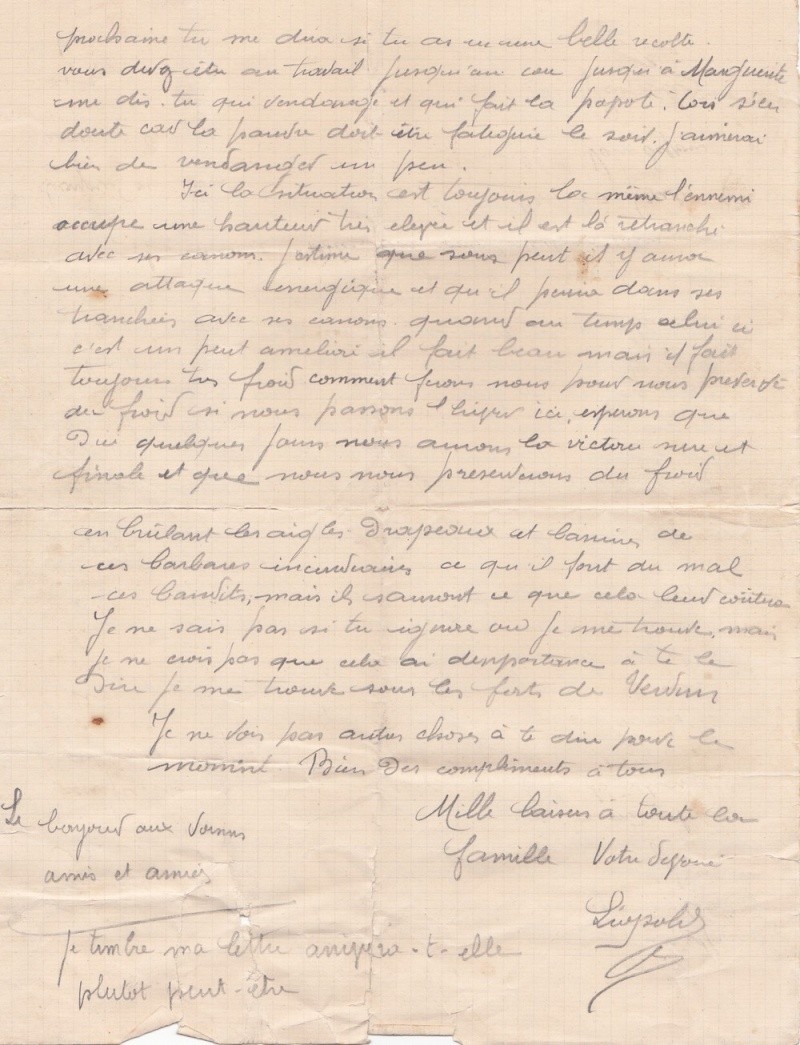 prochaine tu me dira si tu as eu une belle recolte.
vous devez être au travail jusqu'au cou jusqu'à Marguerite
me dis-tu qui vendange et qui fait la popote.
doute car la pauvre doit être fatiguée le soir. j'aimerai
bien de vendanger un peu.
Ici la situation est toujours la même l'ennemi
occupe une hauteur très elevée et il est là retranché
avec ses canons. J'estime que sous peut il y aura
une attaque energique et qu'il perira dans ses
tranchées avec ses canons. quand au temps celui ci
c'est un peut amelioré il fait beau mais il fait
toujours tres froid comment ferons nous pour nous preserver
du froid si nous passons l'hiver ici, esperons que
D'ici quelques jours nous aurons la victoire sure et
finale et que nous nous preserverons du froid
en brûlant les aigles Drapeaux et bannieres de
ces barbares incendiaires ce qu'il font du mal
ces bandits, mais ils sauront ce que cela leur coûtera
Je ne sais pas si tu ignore où je me trouve, mais
je ne crois pas que cela ai d'importance à te le
Dire je me trouve sous les forts de Verdun
Je ne vois pas autres choses à te dire pour le
moment Bien Des compliments à tous
Mille baisers à toute la
famille Votre devoué
Léopold
Le bonjour aux voisins
amis et amies
Je timbre ma lettre arrivera-t-elle
plutot peut-être